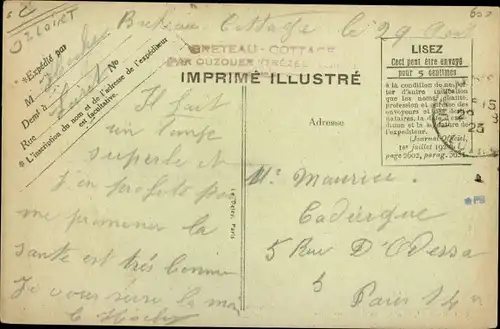 LOIRET
Breteau Cottage le 29
BRETEAU-COTTAGE
PAR OUZOUER
IMPRIMÉ ILLUSTRÉ
*Expédié par
M
Demt à
Loiret
Rue No
* L'inscription du nom et de l'adresse de l'expéditeur
est facultative.
LISEZ
Ceci peut être envoyé
pour 5 centimes
à la condition de ne por-
ter d'autre indication
que les noms, qualité,
profession et adresse des
envoyeurs et
nataires, la date
et la signature de
l'expéditeur.
(Journal Officiel,
1er juillet
page 2602, parag.
Adresse
Il fait
un temps
superbe et
J'en profite pour
me promener la
santé est très bonne
Je vous serre la main
Mr Maurice
5 Rue D'Odessa
Paris 14
Paris